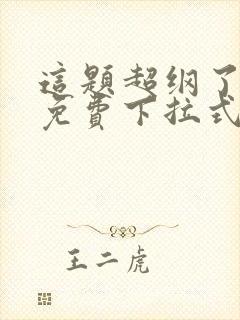 這題超纲了
免費下拉式
王二虎